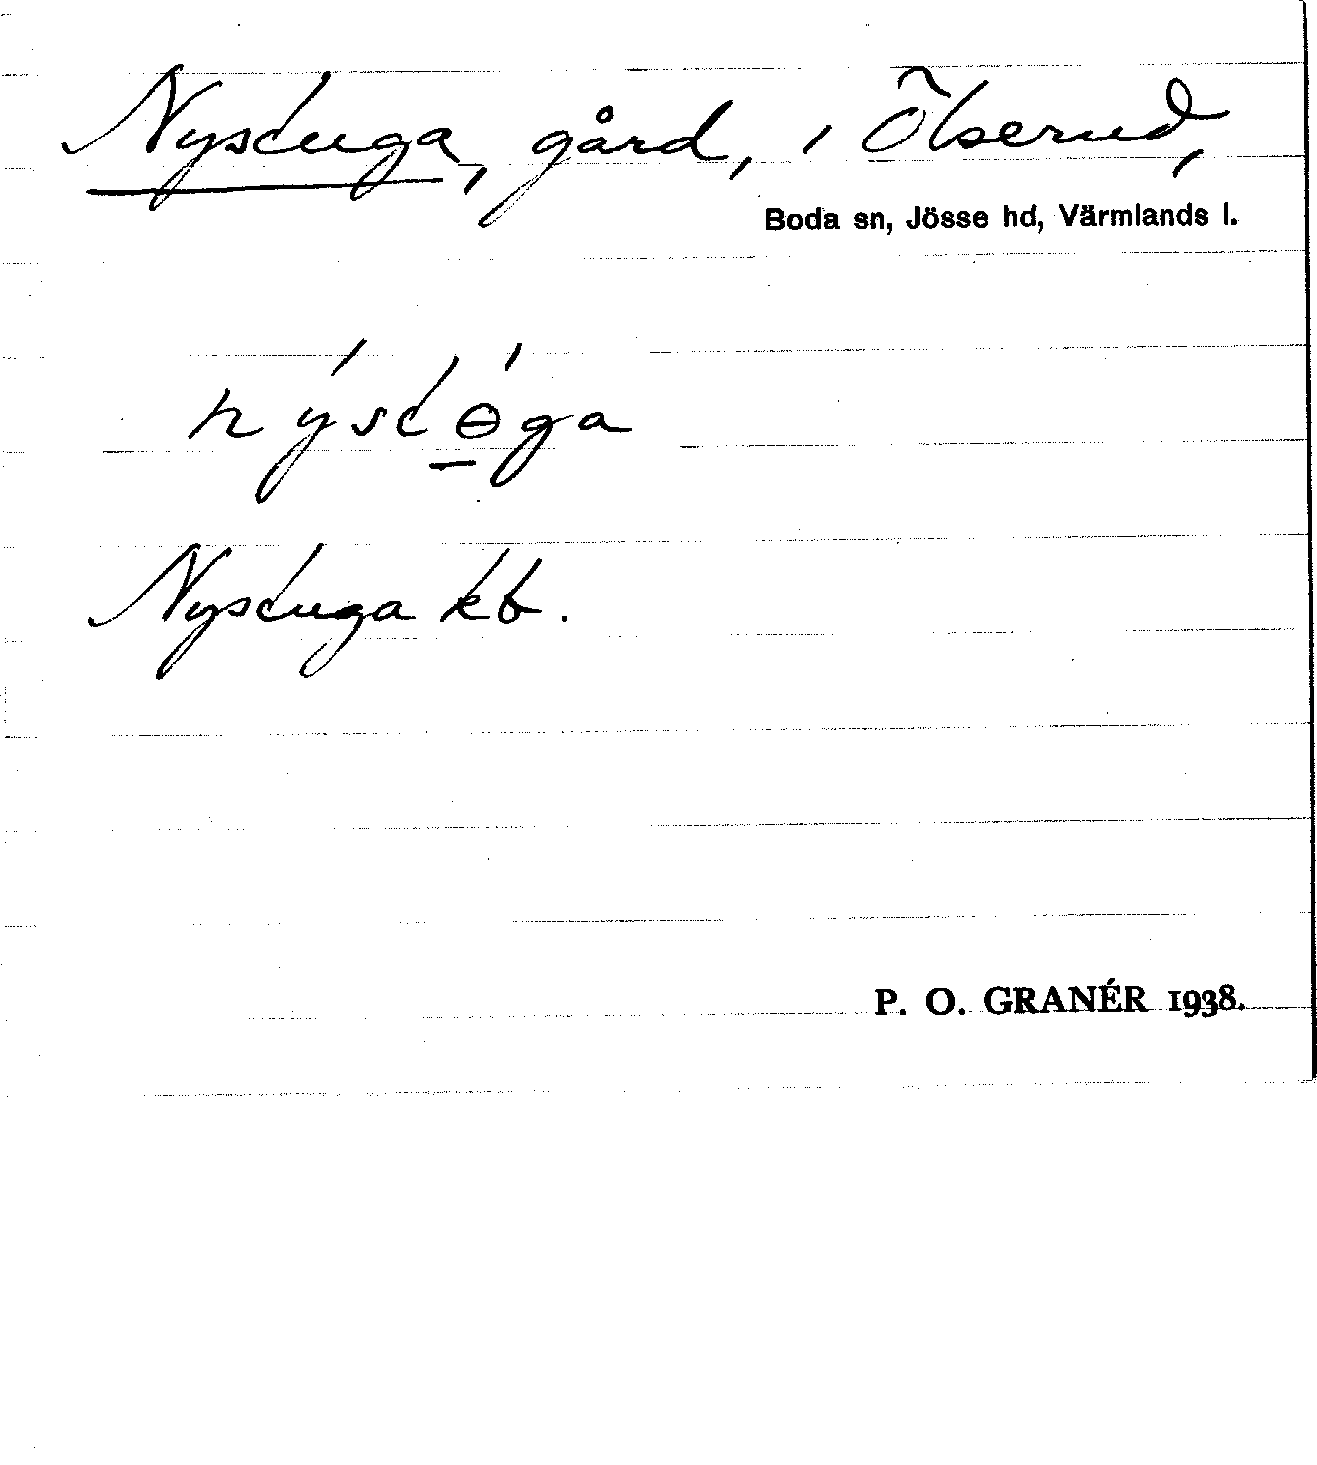 Nystuga, gård, i Ölserud,
Boda sn, Jösse hd, Värmlands l.
nýstɵ́ga
Nystuga kb.
P. O. GRANÉR 1938.